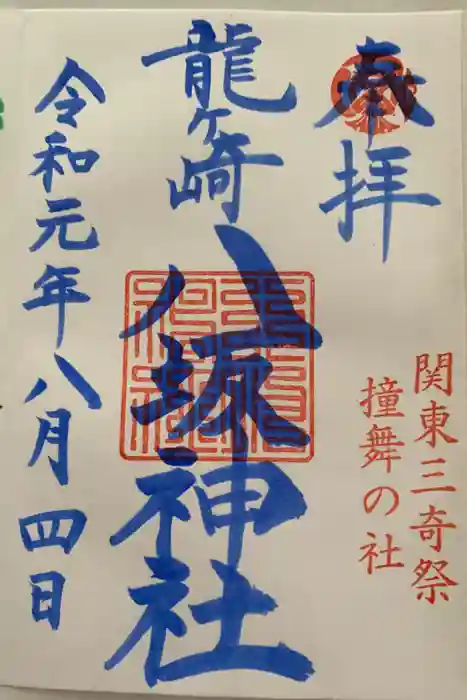 奉拝
関東三奇祭
撞舞の社
龍ヶ崎
八坂神社
令和元年八月四日